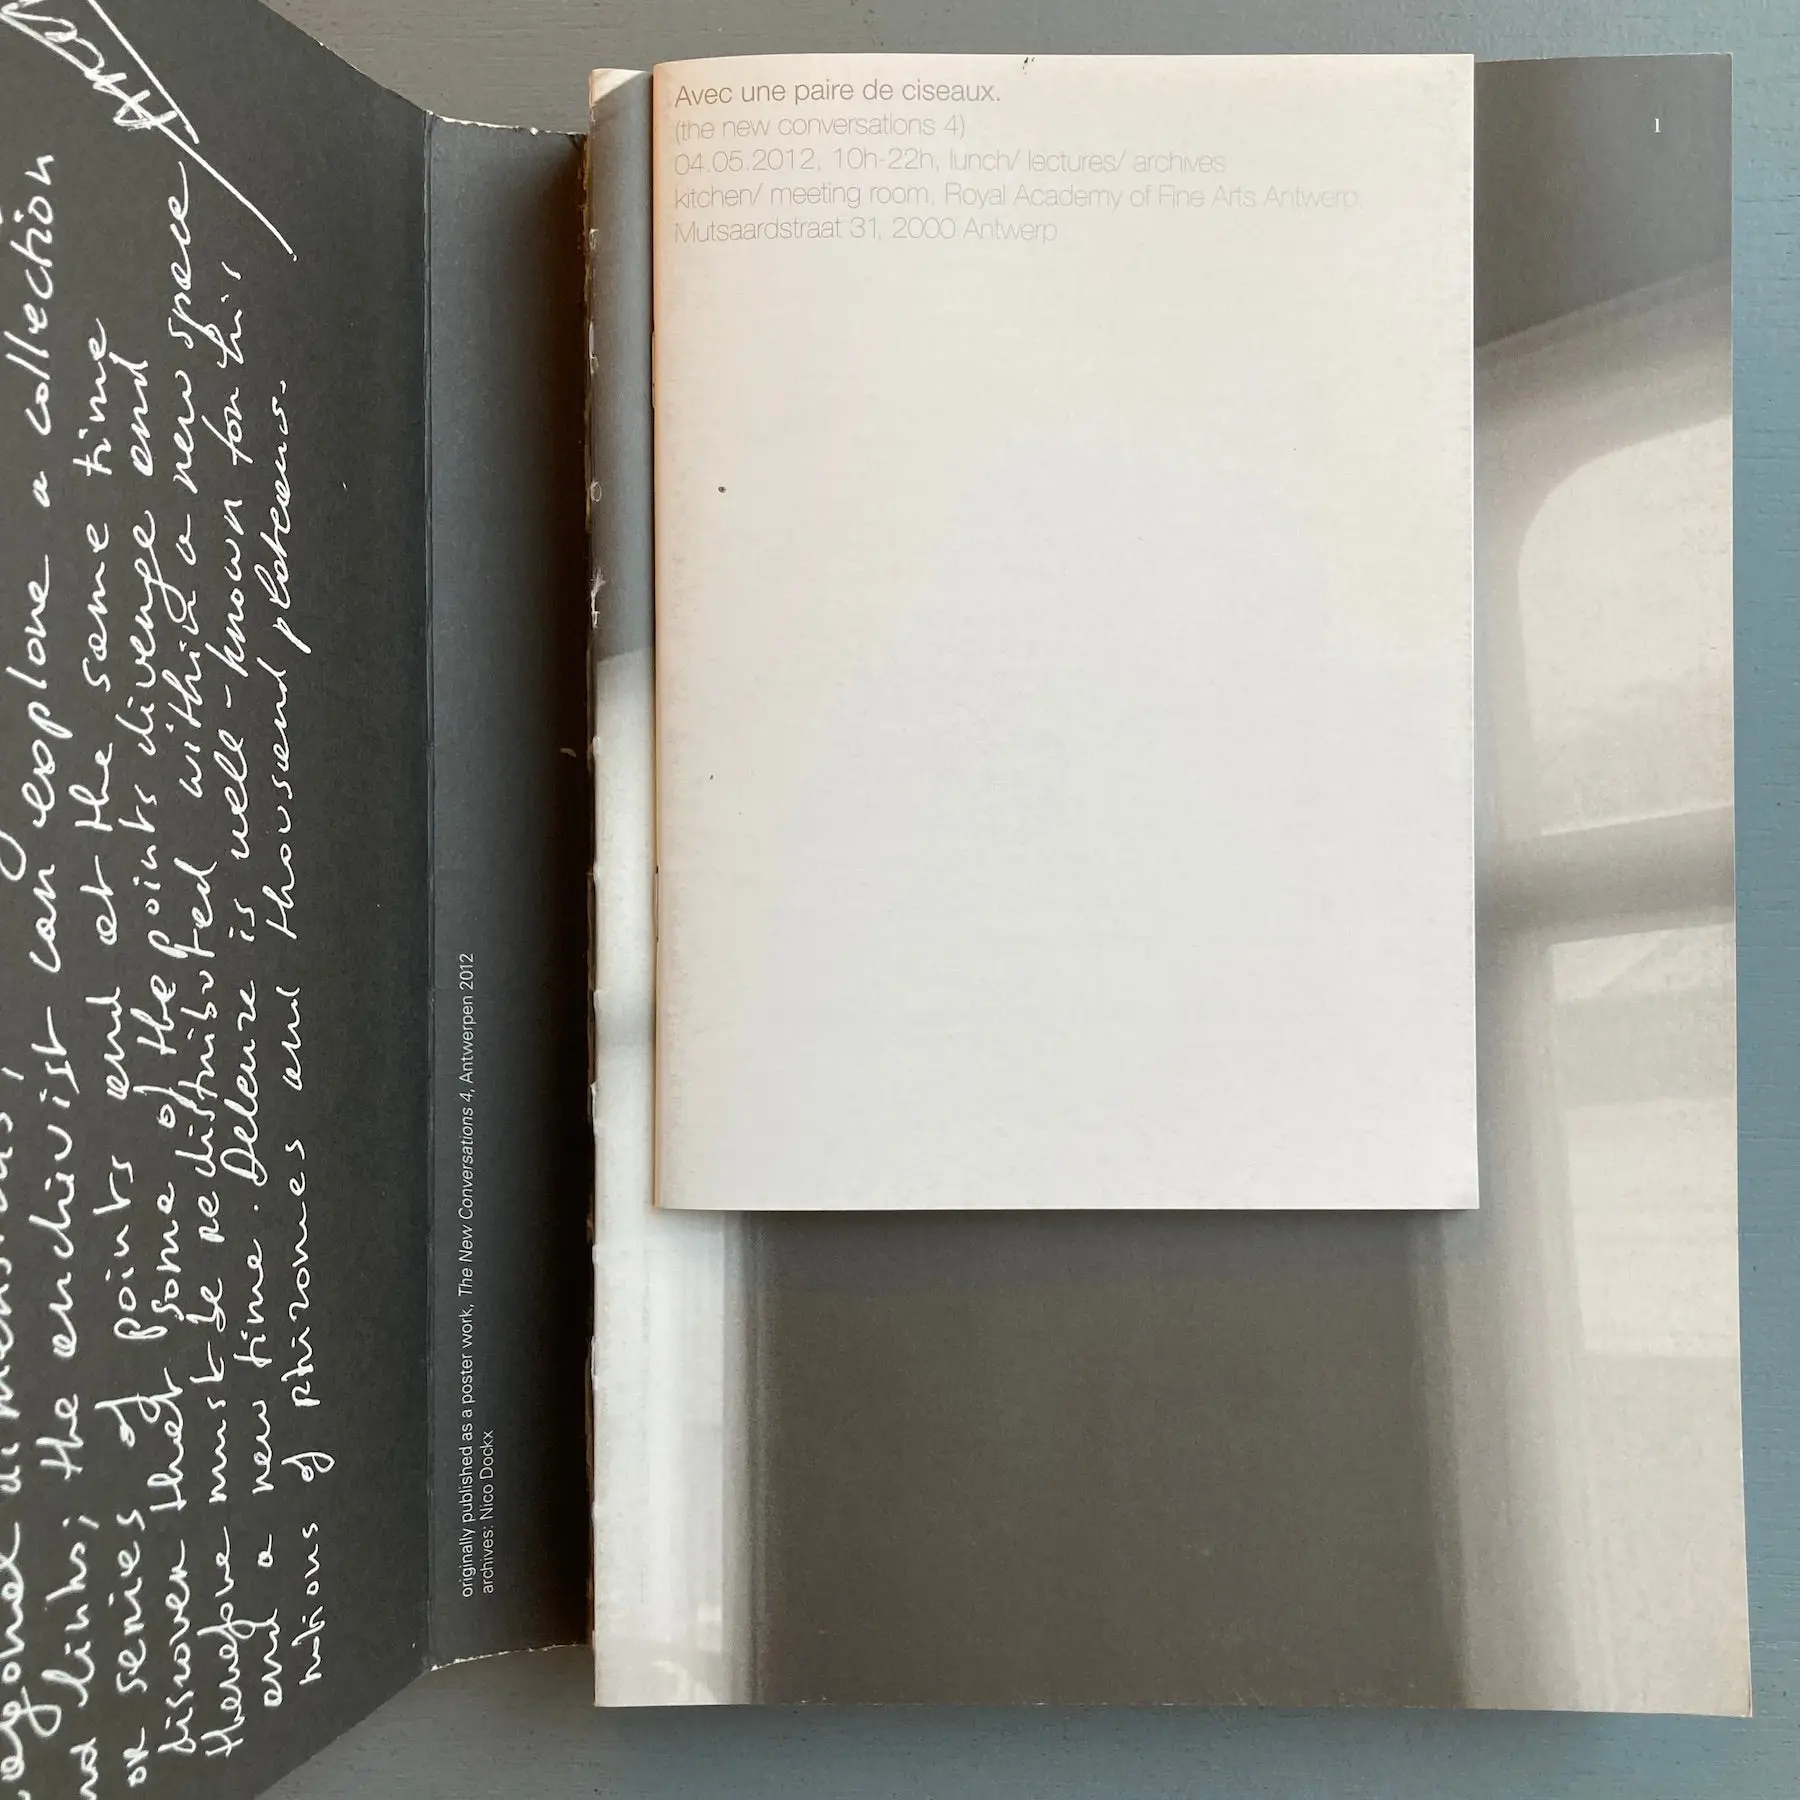 links; the archivist can explore a collection
or series of points and at the same time
discover that some of the points diverge and
therefore must be redistributed within a new space
and a new time. Deleuze is well-known for his
notions of rhizomes and thousand plateaus.
originally published as a poster work, The New Conversations 4, Antwerpen 2012
archives: Nico Dockx
Avec une paire de ciseaux.
(the new conversations 4)
04.05.2012, 10h-22h, lunch/ lectures/ archives
kitchen/ meeting room, Royal Academy of Fine Arts Antwerp,
Mutsaardstraat 31, 2000 Antwerp
1